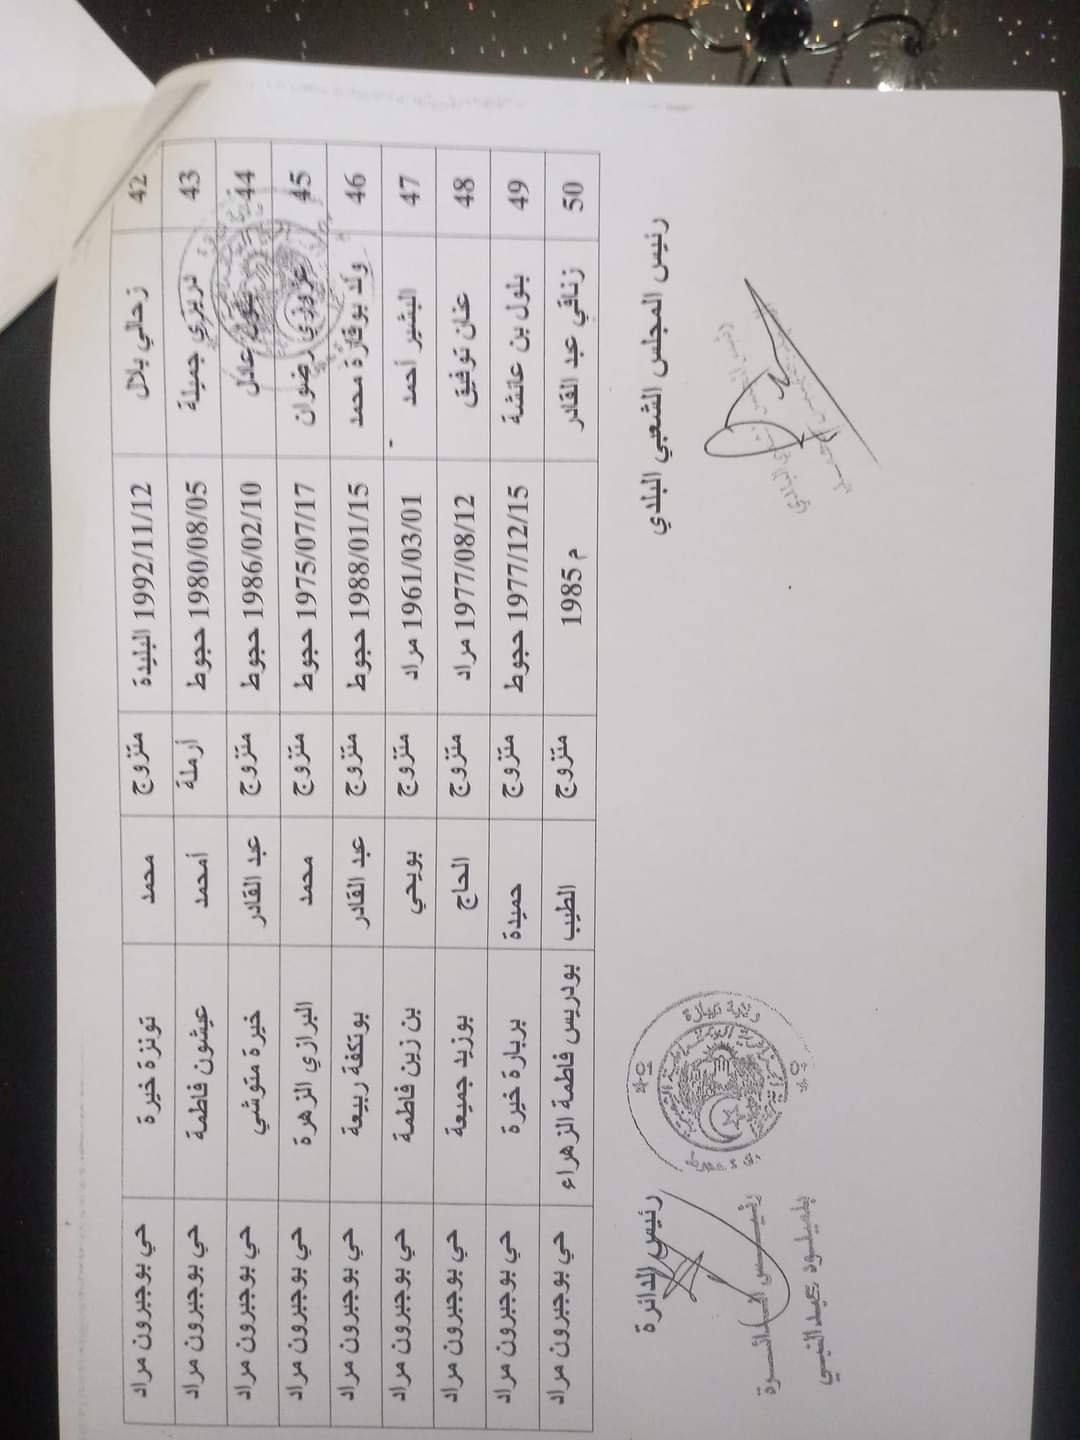 42 زحالي بلال 1992/11/12 البليدة متزوج محمد تونزة خيرة حي بوجبرون مراد
43 لزيزي جميلة 1980/08/05 حجوط أرملة أمحمد عيشون فاطمة حي بوجبرون مراد
44 عادل 1986/02/10 حجوط متزوج عبد القادر خيرة متوشي حي بوجبرون مراد
45 رضوان 1975/07/17 حجوط متزوج محمد البرازي الزهرة حي بوجبرون مراد
46 ولد بوقارة محمد 1988/01/15 حجوط متزوج عبد القادر بوتكفة ربيعة حي بوجبرون مراد
47 البشير أحمد 1961/03/01 مراد متزوج بويحي بن زين فاطمة حي بوجبرون مراد
48 عنان توفيق 1977/08/12 مراد متزوج الحاج بوزيد جميعة حي بوجبرون مراد
49 بلول بن عائشة 1977/12/15 حجوط متزوج حميدة بربارة خيرة حي بوجبرون مراد
50 زناقي عبد القادر م 1985 متزوج الطيب بودريس فاطمة الزهراء حي بوجبرون مراد
رئيس المجلس الشعبي البلدي رئيس الدائرة
رئيس الدائرة
بلميلود عبد النبي